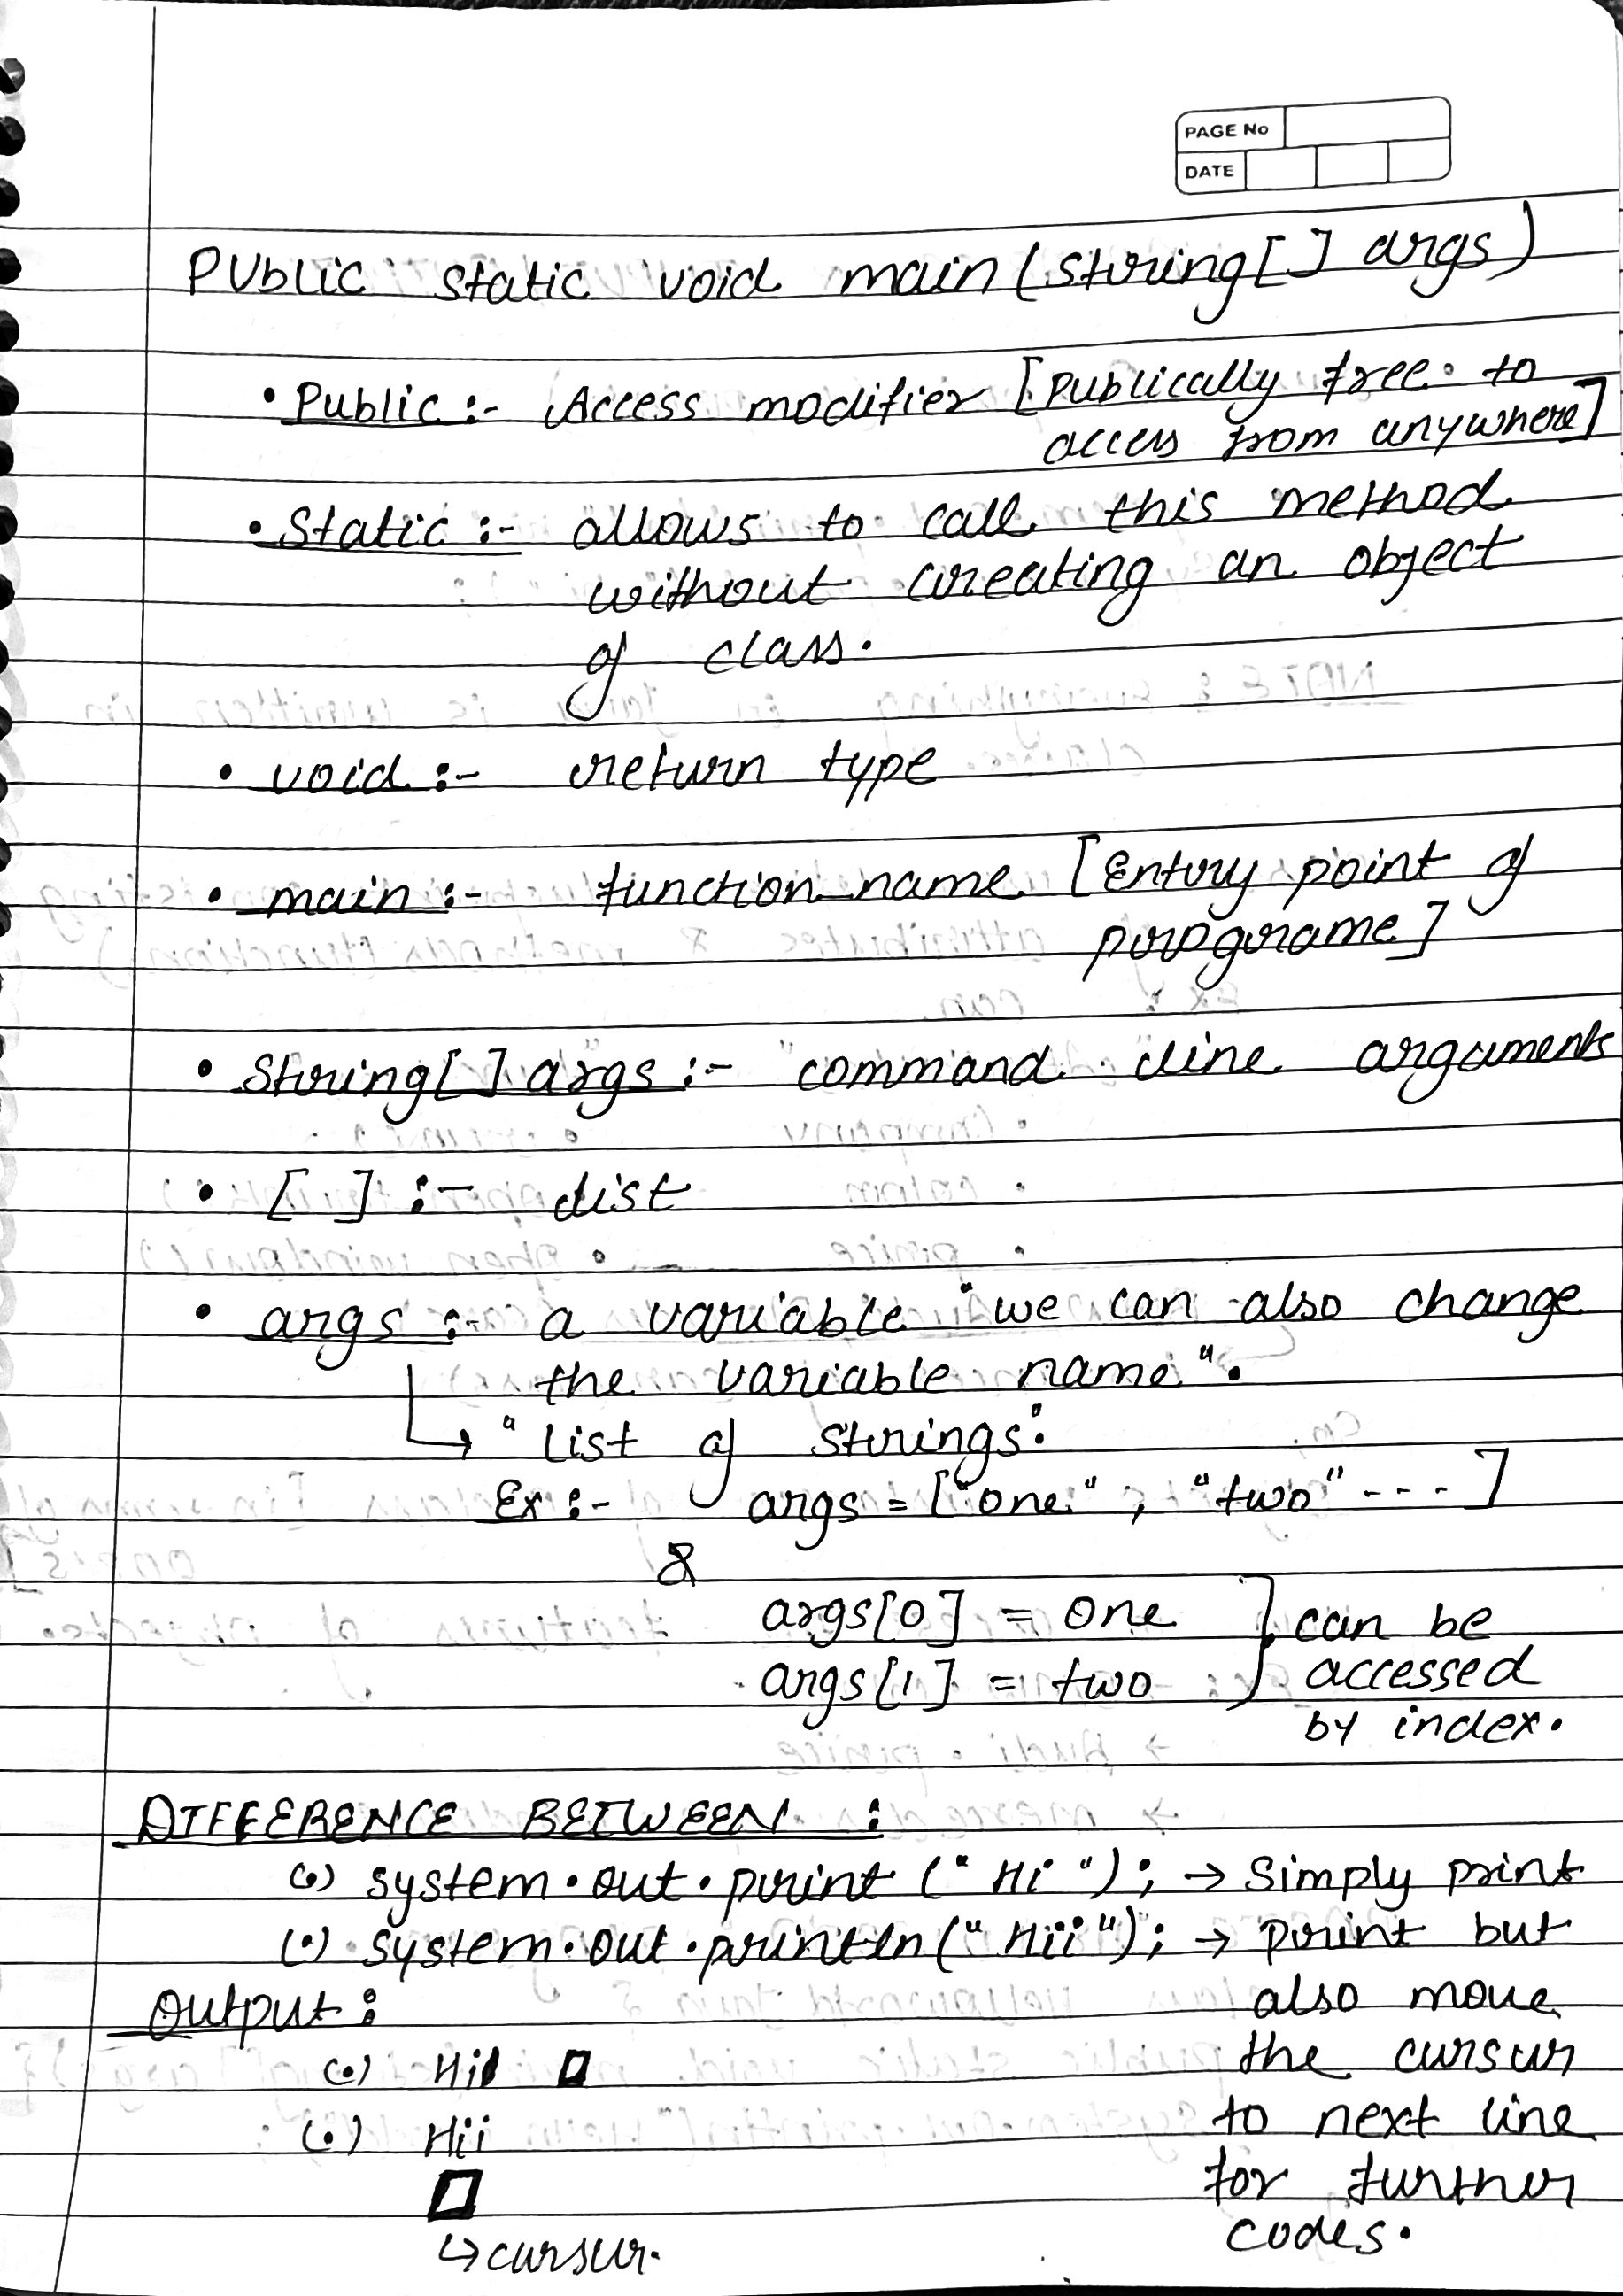 PAGE No
DATE
Public static void main (string[] args)
• Public :- Access modifier [Publically free to
access from anywhere]
• Static :- allows to call this method
without creating an object
of class.
• void :- return type
• main :- function name [Entry point of
programe]
• String[] args :- command line arguments
• [ ] :- list
• args :- a variable "we can also change
the variable name".
↳ "List of strings".
Ex :- args = ["one", "two" ----]
&
args[0] = one ] can be
args[1] = two accessed
by index.
DIFFERENCE BETWEEN :
(•) system.out.print ("Hi"); → Simply print
(•) system.out.println("Hii"); → Print but
also move
the cursur
to next line
for further
codes.
Output :
(•) Hi
(•) Hii
↳ cursur.